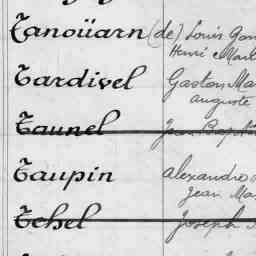 Tanoüarn (de) Louis
Henri
Tardivel Gaston
Auguste
Taunel Jean Bap
Taupin Alexandre
Jean
Tehel Joseph